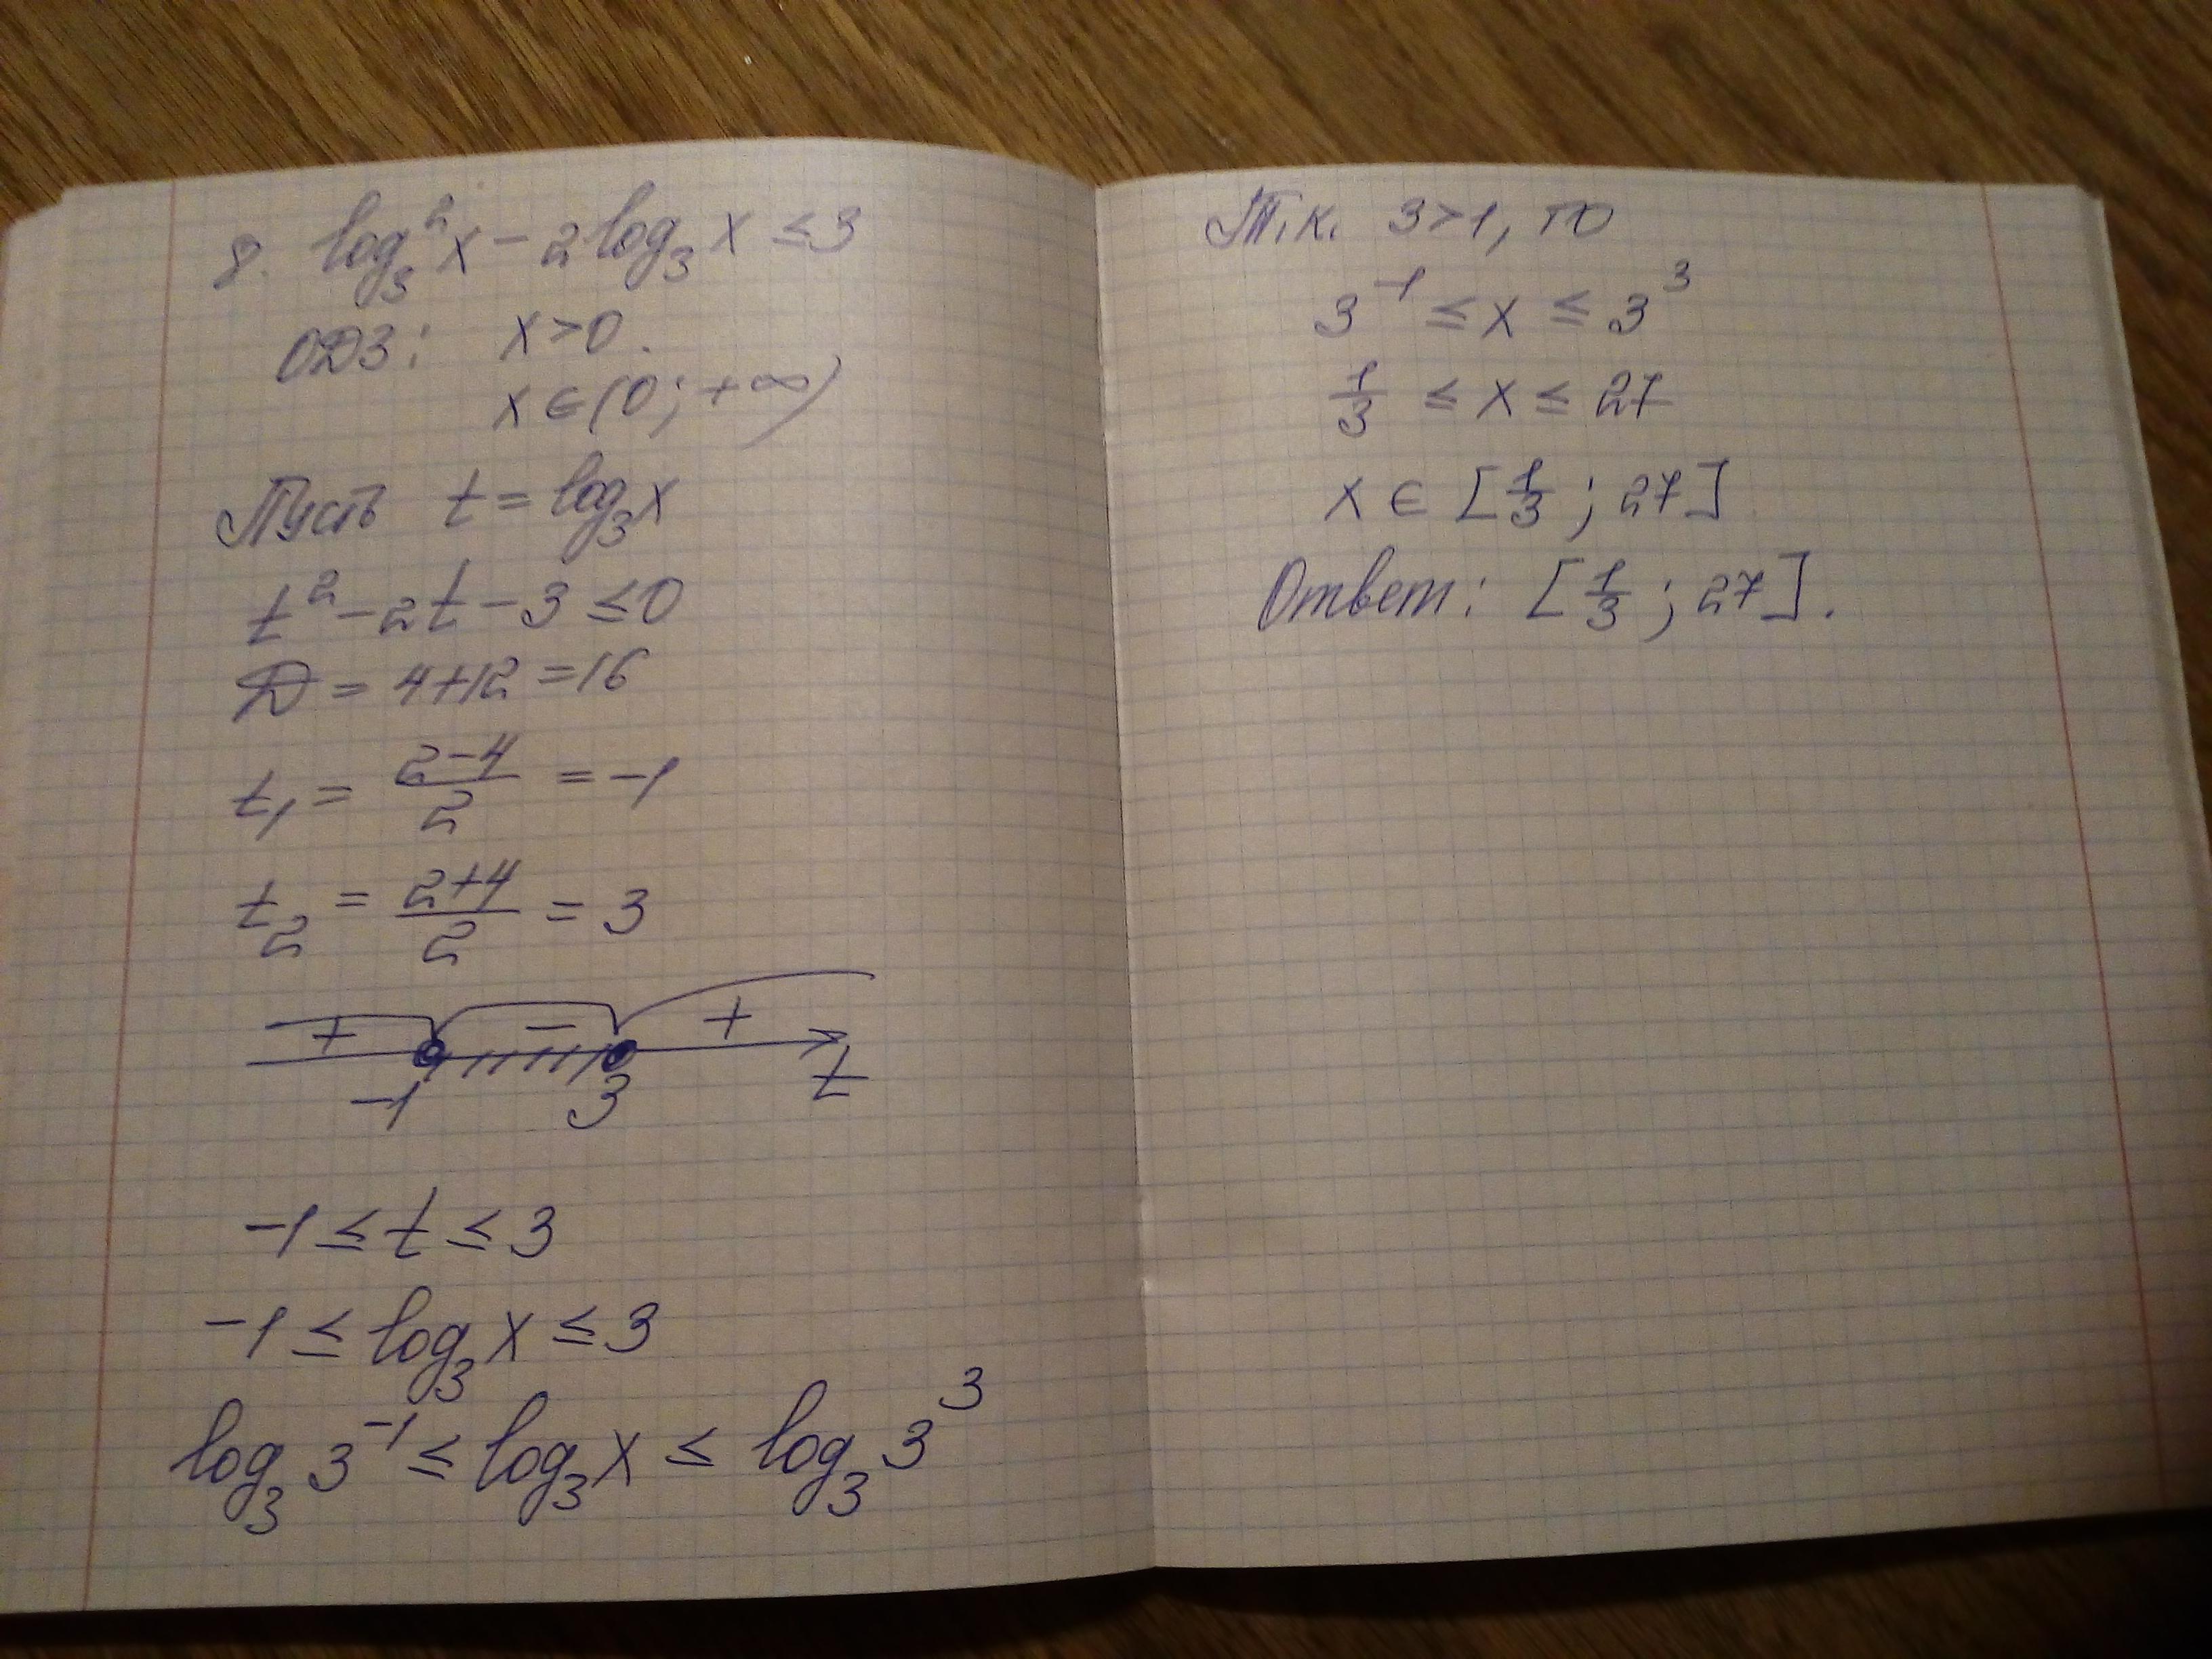 8. log₃²x − 2log₃x ≤ 3
ОДЗ: x>0.
x ∈ (0; +∞)
Пусть t = log₃x
t² − 2t − 3 ≤ 0
D = 4+12 = 16
t₁ = (2−4)/2 = −1
t₂ = (2+4)/2 = 3
+ − +
−1 3 t
−1 ≤ t ≤ 3
−1 ≤ log₃x ≤ 3
log₃3⁻¹ ≤ log₃x ≤ log₃3³
Т.к. 3>1, то
3⁻¹ ≤ x ≤ 3³
1/3 ≤ x ≤ 27
x ∈ [1/3; 27]
Ответ: [1/3; 27].